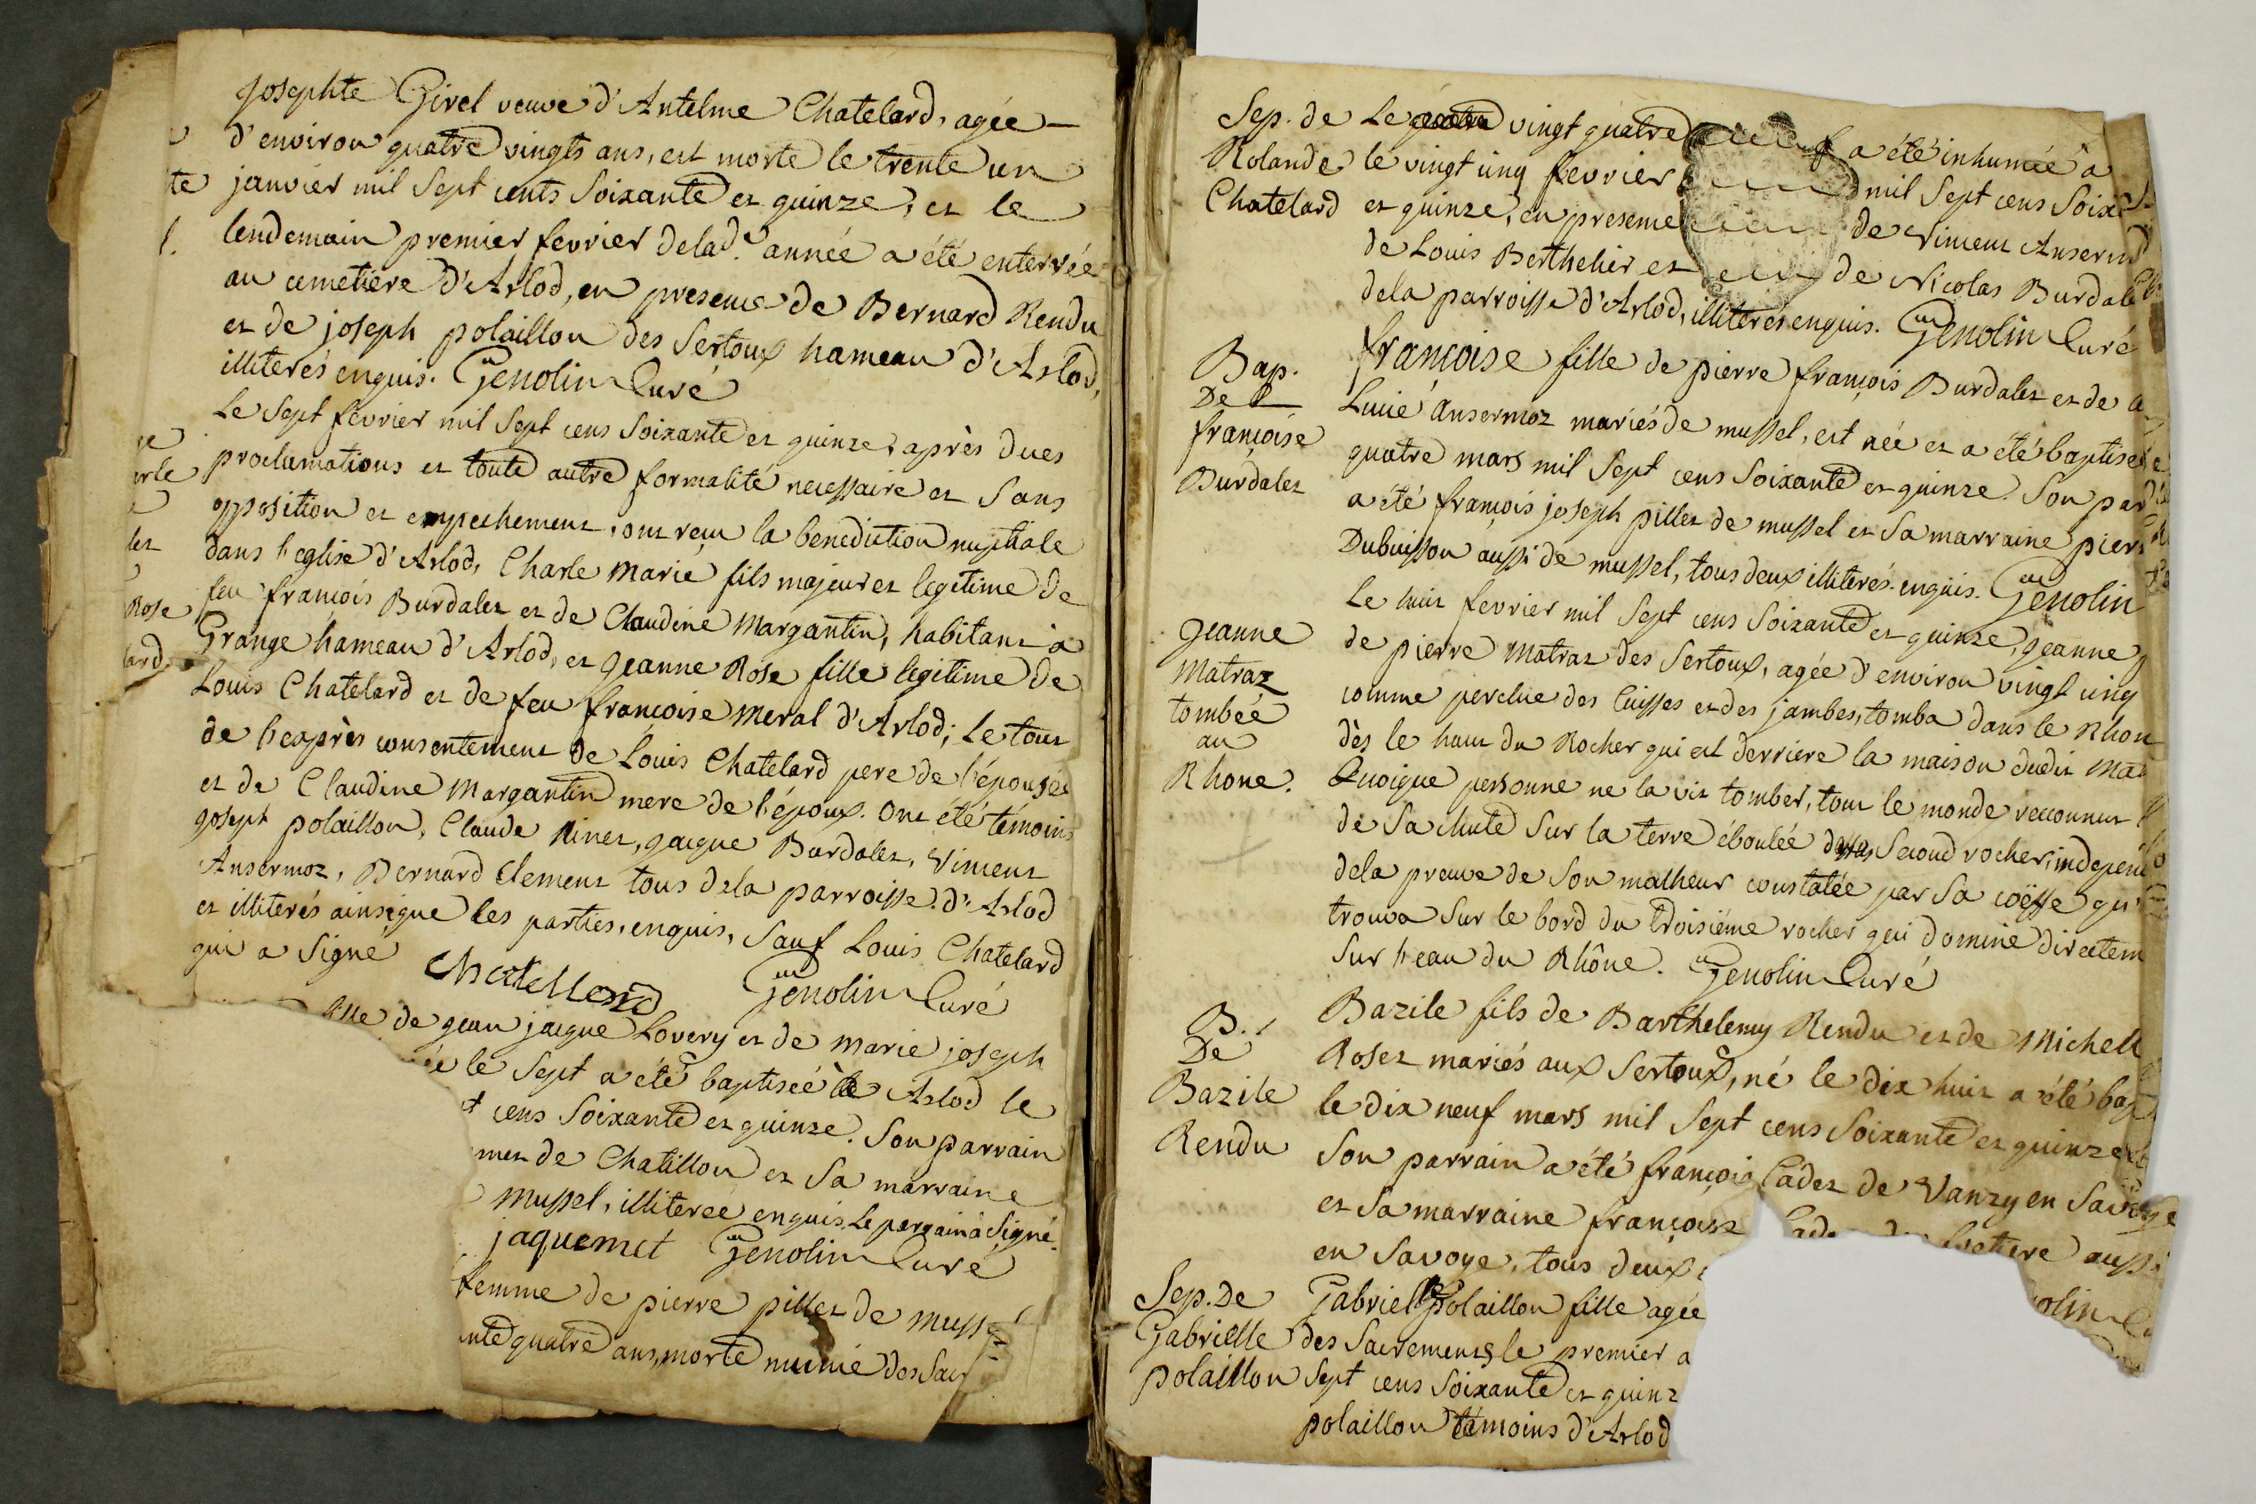 Josephte Girel veuve d'Antelme Chatelard, agée
d'environ quatre vingts ans, est morte le trente un
janvier mil Sept cents Soixante et quinze, et le
lendemain premier fevrier delad.e année a été enterrée
au cemetiere d'Arlod, en presence de Bernard Rendu
et de joseph polaillon des Sertoux hameau d'Arlod,
illiterés enquis. Genolin Curé
Le Sept fevrier mil Sept cens Soixante et quinze, après dues
proclamations et toute autre formalité necessaire et Sans
opposition et empechement, ont reçu la benediction nuptiale
dans l'eglise d'Arlod, Charle Marie fils majeur et legitime de
feu françois Burdalet et de Claudine Margantin, habitant à
Grange hameau d'Arlod, et Jeanne Rose fille legitime de
Louis Chatelard et de feu françoise Meral d'Arlod; Le tout
de l'exprès consentement de Louis Chatelard pere de l'épousée
et de Claudine Margantin mere de l'époux. Ont été témoins
Joseph polaillon, Claude Ninet, Jacque Burdalet, Vincent
Ansermoz, Bernard Clement tous dela parroisse d'Arlod
et illiterés ainsique les parties, enquis, Sauf Louis Chatelard
qui a Signé
Chatellard Genolin Curé
fille de Jean jacque Lovery et de Marie joseph
le Sept a été baptisée Arlod le
cens Soixante et quinze. Son parrain
met de Chatillon et Sa marraine
Mussel, illiterée enquis, Le parrain a Signé.
jaquemet Genolin Curé
femme de pierre pillet de Muss
quatre ans, morte munie des Sac
te
l.
Rose
lard
Sep. de
Rolande
Chatelard
Le vingt quatre a été inhumée a
le vingt cinq fevrier mil Sept cens Soix
et quinze, en presence de Vincent Anserm
de Louis Berthelier et de Nicolas Burdale
dela parroisse d'Arlod, illiterés enquis. Genolin Curé
Bap.
De
françoise
Burdalet
françoise fille de pierre françois Burdalet et de
Lucie Ansermoz mariés de mussel, est née et a été baptisée
quatre mars mil Sept cens Soixante et quinze. Son par
a été françois joseph pillet de mussel et Sa marraine pier
Dubuisson aussi de mussel, tous deux illiterés enquis. Genolin
Jeanne
Matraz
tombée
au
Rhone.
Le huit fevrier mil Sept cens Soixante et quinze, Jeanne
de pierre Matraz des Sertoux, agée d'environ vingt cinq
comme perclue des Cuisses et des jambes, tomba dans le Rhon
dès le haut du Rocher qui est derriere la maison dudit Ma
Quoique personne ne la vit tomber, tout le monde reconnut
de Sa chute Sur la terre éboulée Second rocher, independ
dela preuve de Son malheur constatée par Sa coëffe qu
trouva Sur le bord du troisiéme rocher qui domine directem
Sur l'eau du Rhône. Genolin Curé
B.
De
Bazile
Rendu
Bazile fils de Barthelemy Rendu et de Michell
Roset mariés aux Sertoux, né le dix huit a été bap
le dix neuf mars mil Sept cens Soixante et quinze
Son parrain a été françois Cadet de Vanzy en Savoye
et Sa marraine françoise aussi
en Savoye, tous deux
nolin Cu
Sep. De
Gabrielle
polaillon
Gabrielle polaillon fille agée
des Sacremens, le premier a
Sept cens Soixante et quinz
polaillon témoins d'Arlod